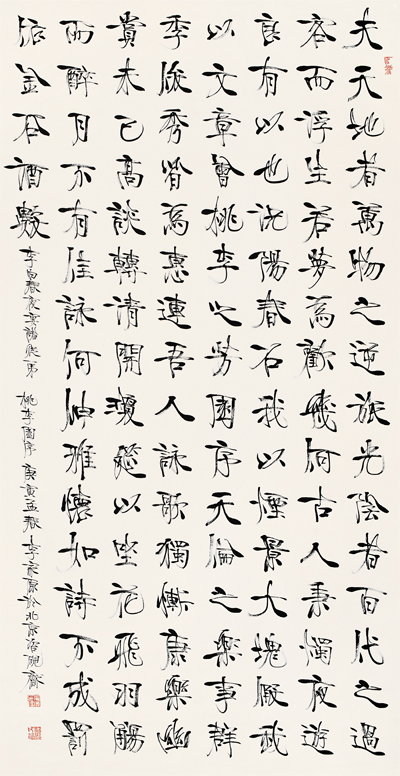 夫天地者萬物之逆旅光陰者百代之過
客而浮生若夢為歡幾何古人秉燭夜遊
良有以也況陽春召我以煙景大塊假我
以文章會桃李之芳園序天倫之樂事群
季俊秀皆為惠連吾人詠歌獨慚康樂幽
賞未已高談轉清開瓊筵以坐花飛羽觴
而醉月不有佳詠何伸雅懷如詩不成罰
依金谷酒數
李白春夜宴諸從弟桃李園序 庚寅孟春 李家原於北京